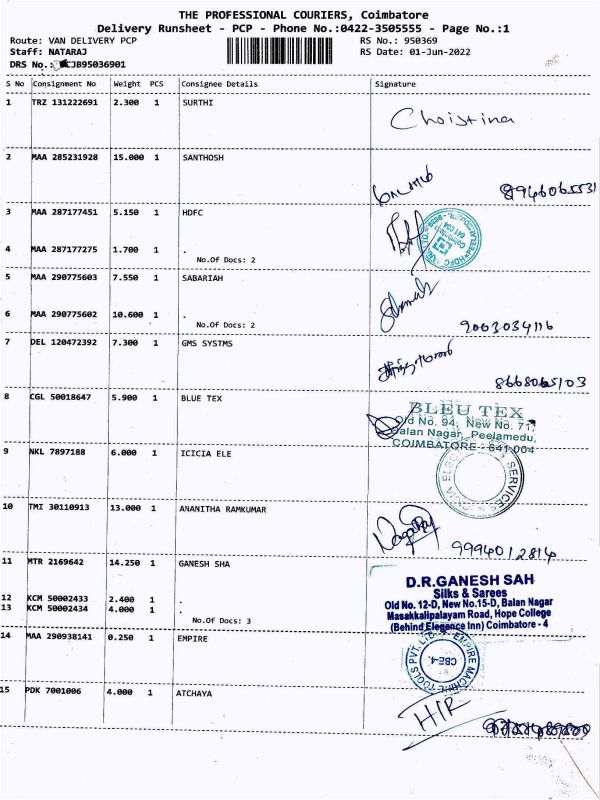 THE PROFESSIONAL COURIERS, Coimbatore
Delivery Runsheet - PCP - Phone No.:0422-3505555 - Page No.:1
Route: VAN DELIVERY PCP RS No.: 950369
Staff: NATARAJ RS Date: 01-Jun-2022
DRS No.: CJB95036901
S No Consignment No Weight PCS Consignee Details Signature
1 TRZ 131222691 2.300 1 SURTHI
Christina
2 MAA 285231928 15.000 1 SANTHOSH
3 MAA 287177451 5.150 1 HDFC
4 MAA 287177275 1.700 1 .
No.Of Docs: 2
5 MAA 290775603 7.550 1 SABARIAH
6 MAA 290775602 10.600 1 .
No.Of Docs: 2
9003034116
7 DEL 120472392 7.300 1 GMS SYSTMS
8668065103
8 CGL 50018647 5.900 1 BLUE TEX
BLEU TEX
Old No. 94, New No. 71,
Balan Nagar, Peelamedu,
COIMBATORE - 641 004
9 NKL 7897188 6.000 1 ICICIA ELE
SERVICES
10 TMI 30110913 13.000 1 ANANITHA RAMKUMAR
Nagaraj
9994012814
11 MTR 2169642 14.250 1 GANESH SHA
12 KCM 50002433 2.400 1 .
13 KCM 50002434 4.000 1 .
No.Of Docs: 3
D.R.GANESH SAH
Silks & Sarees
Old No. 12-D, New No.15-D, Balan Nagar
Masakkalipalayam Road, Hope College
(Behind Elegance Inn) Coimbatore - 4
14 MAA 290938141 0.250 1 EMPIRE
EMPIRE MACHINE TOOLS PVT. LTD
CBE-4.
15 PDK 7001006 4.000 1 ATCHAYA
HIR